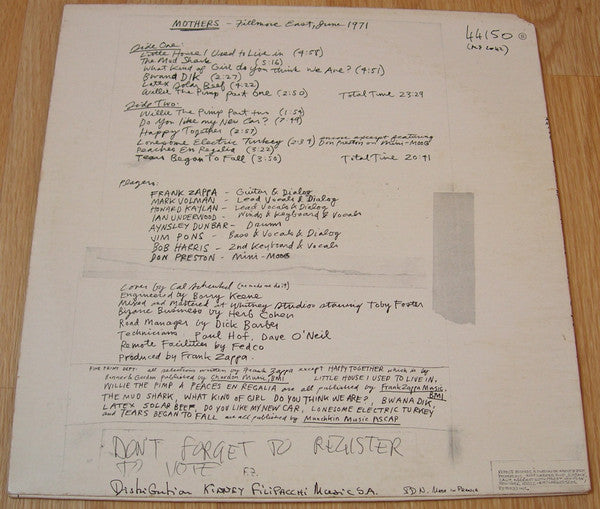 MOTHERS - Fillmore East, June 1971
44150
Side One:
Little House I Used to Live in (4:58)
The Mud Shark (5:16)
What Kind of Girl do you think We Are? (4:51)
Bwana DIK (2:27)
Latex Solar Beef (4:22)
Willie The Pimp Part One (2:50) Total Time 23:29
Side Two:
Willie The Pump Part two (1:54)
Do You like my New Car? (7:49)
Happy Together (2:57)
Lonesome Electric Turkey (2:34) encore excerpt featuring Don Preston on Mini-Moog
Peaches En Regalia (3:22)
Tears Began To Fall (3:50) Total Time 20:41
Players:
FRANK ZAPPA - Guitar & Dialog
MARK VOLMAN - Lead Vocals & Dialog
HOWARD KAYLAN - Lead Vocals & Dialog
IAN UNDERWOOD - Winds & Keyboard & Vocals
AYNSLEY DUNBAR - Drums
JIM PONS - Bass & Vocals & Dialog
BOB HARRIS - 2nd Keyboard & Vocals
DON PRESTON - Mini-Moog
Cover by Cal Schenkel
Engineered by Barry Keene
Mixed and Mastered at Whitney Studios starring Toby Foster
Bizarre Business by Herb Cohen
Road Manager by Dick Barber
Technicians Paul Hof, Dave O'Neil
Remote Facilities by Fedco
Produced by Frank Zappa
FINE PRINT DEPT: all selections written by Frank Zappa except HAPPY TOGETHER which is by
Bonner & Gordon published by Chardon Music, BMI LITTLE HOUSE I USED TO LIVE IN,
WILLIE THE PIMP & PEACES EN REGALIA are all published by Frank Zappa Music, BMI
THE MUD SHARK, WHAT KIND OF GIRL DO YOU THINK WE ARE?, BWANA DIK,
LATEX SOLAR BEEF, DO YOU LIKE MY NEW CAR, LONESOME ELECTRIC TURKEY
and TEARS BEGAN TO FALL are all published by Munchkin Music ASCAP
DON'T FORGET TO REGISTER
TO VOTE F.Z.
Distribution KINNEY FILIPACCHI MUSIC S.A.